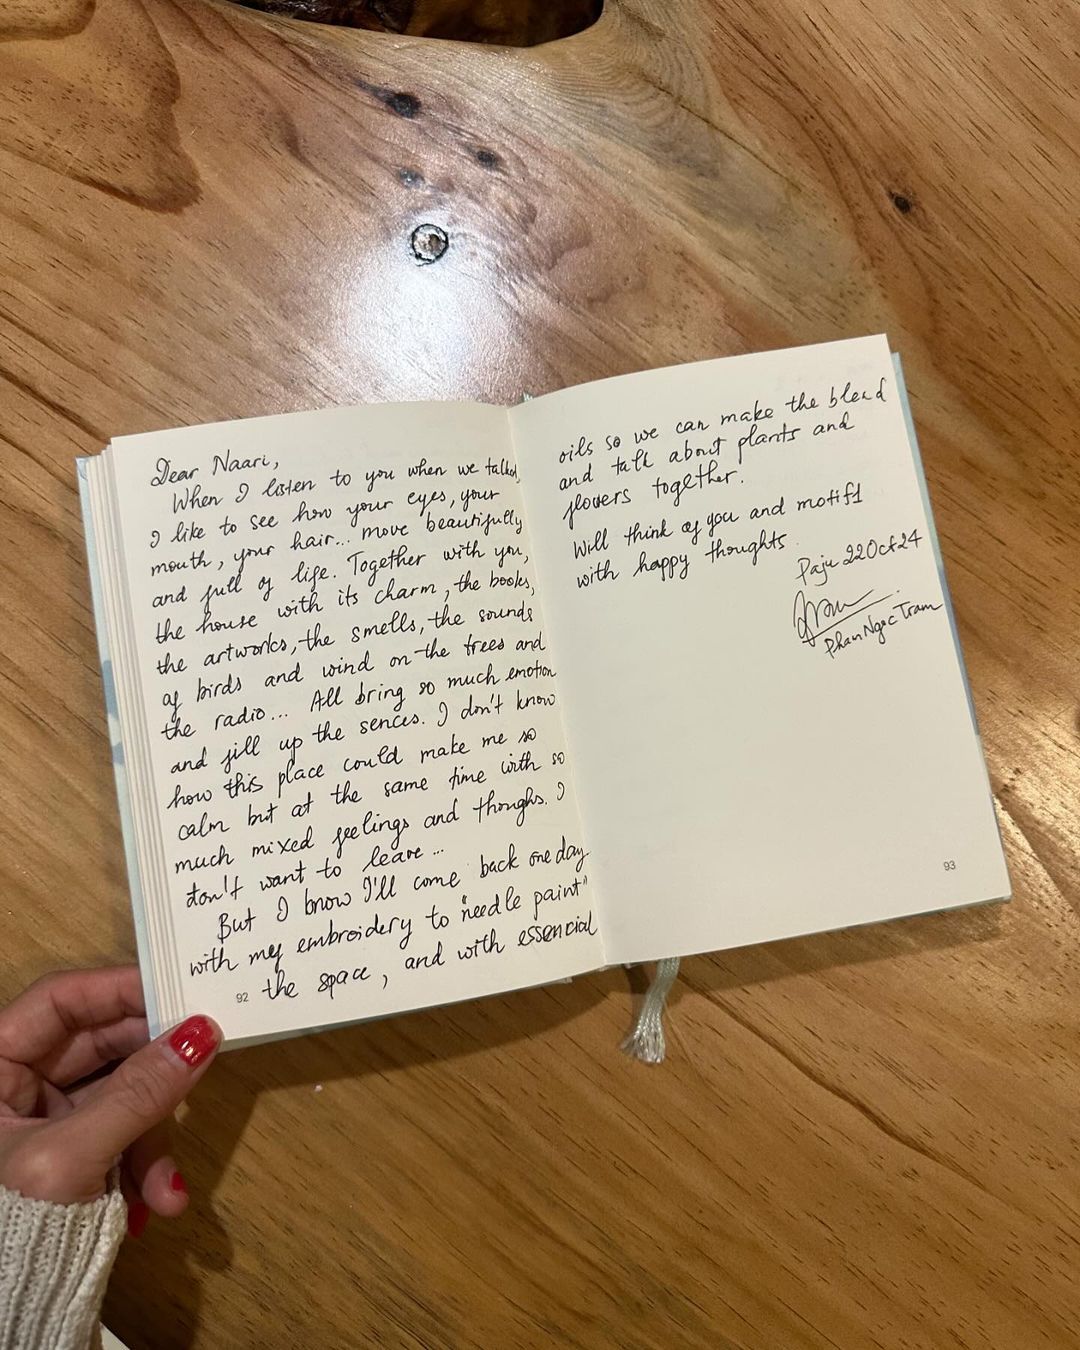 Dear Naari,
When I listen to you when we talked,
I like to see how your eyes, your
mouth, your hair... move beautifully
and full of life. Together with you,
the house with its charm, the books,
the artworks, the smells, the sounds
of birds and wind on the trees and
the radio... All bring so much emotion
and fill up the sences. I don't know
how this place could make me so
calm but at the same time with so
much mixed feelings and thoughs. I
don't want to leave...
But I know I'll come back one day
with my embroidery to "needle paint"
the space, and with essencial
92
oils so we can make the blend
and talk about plants and
flovers together.
Will think of you and motif1
with happy thoughts.
Paju 22Oct24
Tram
Phan Ngoc Tram
93